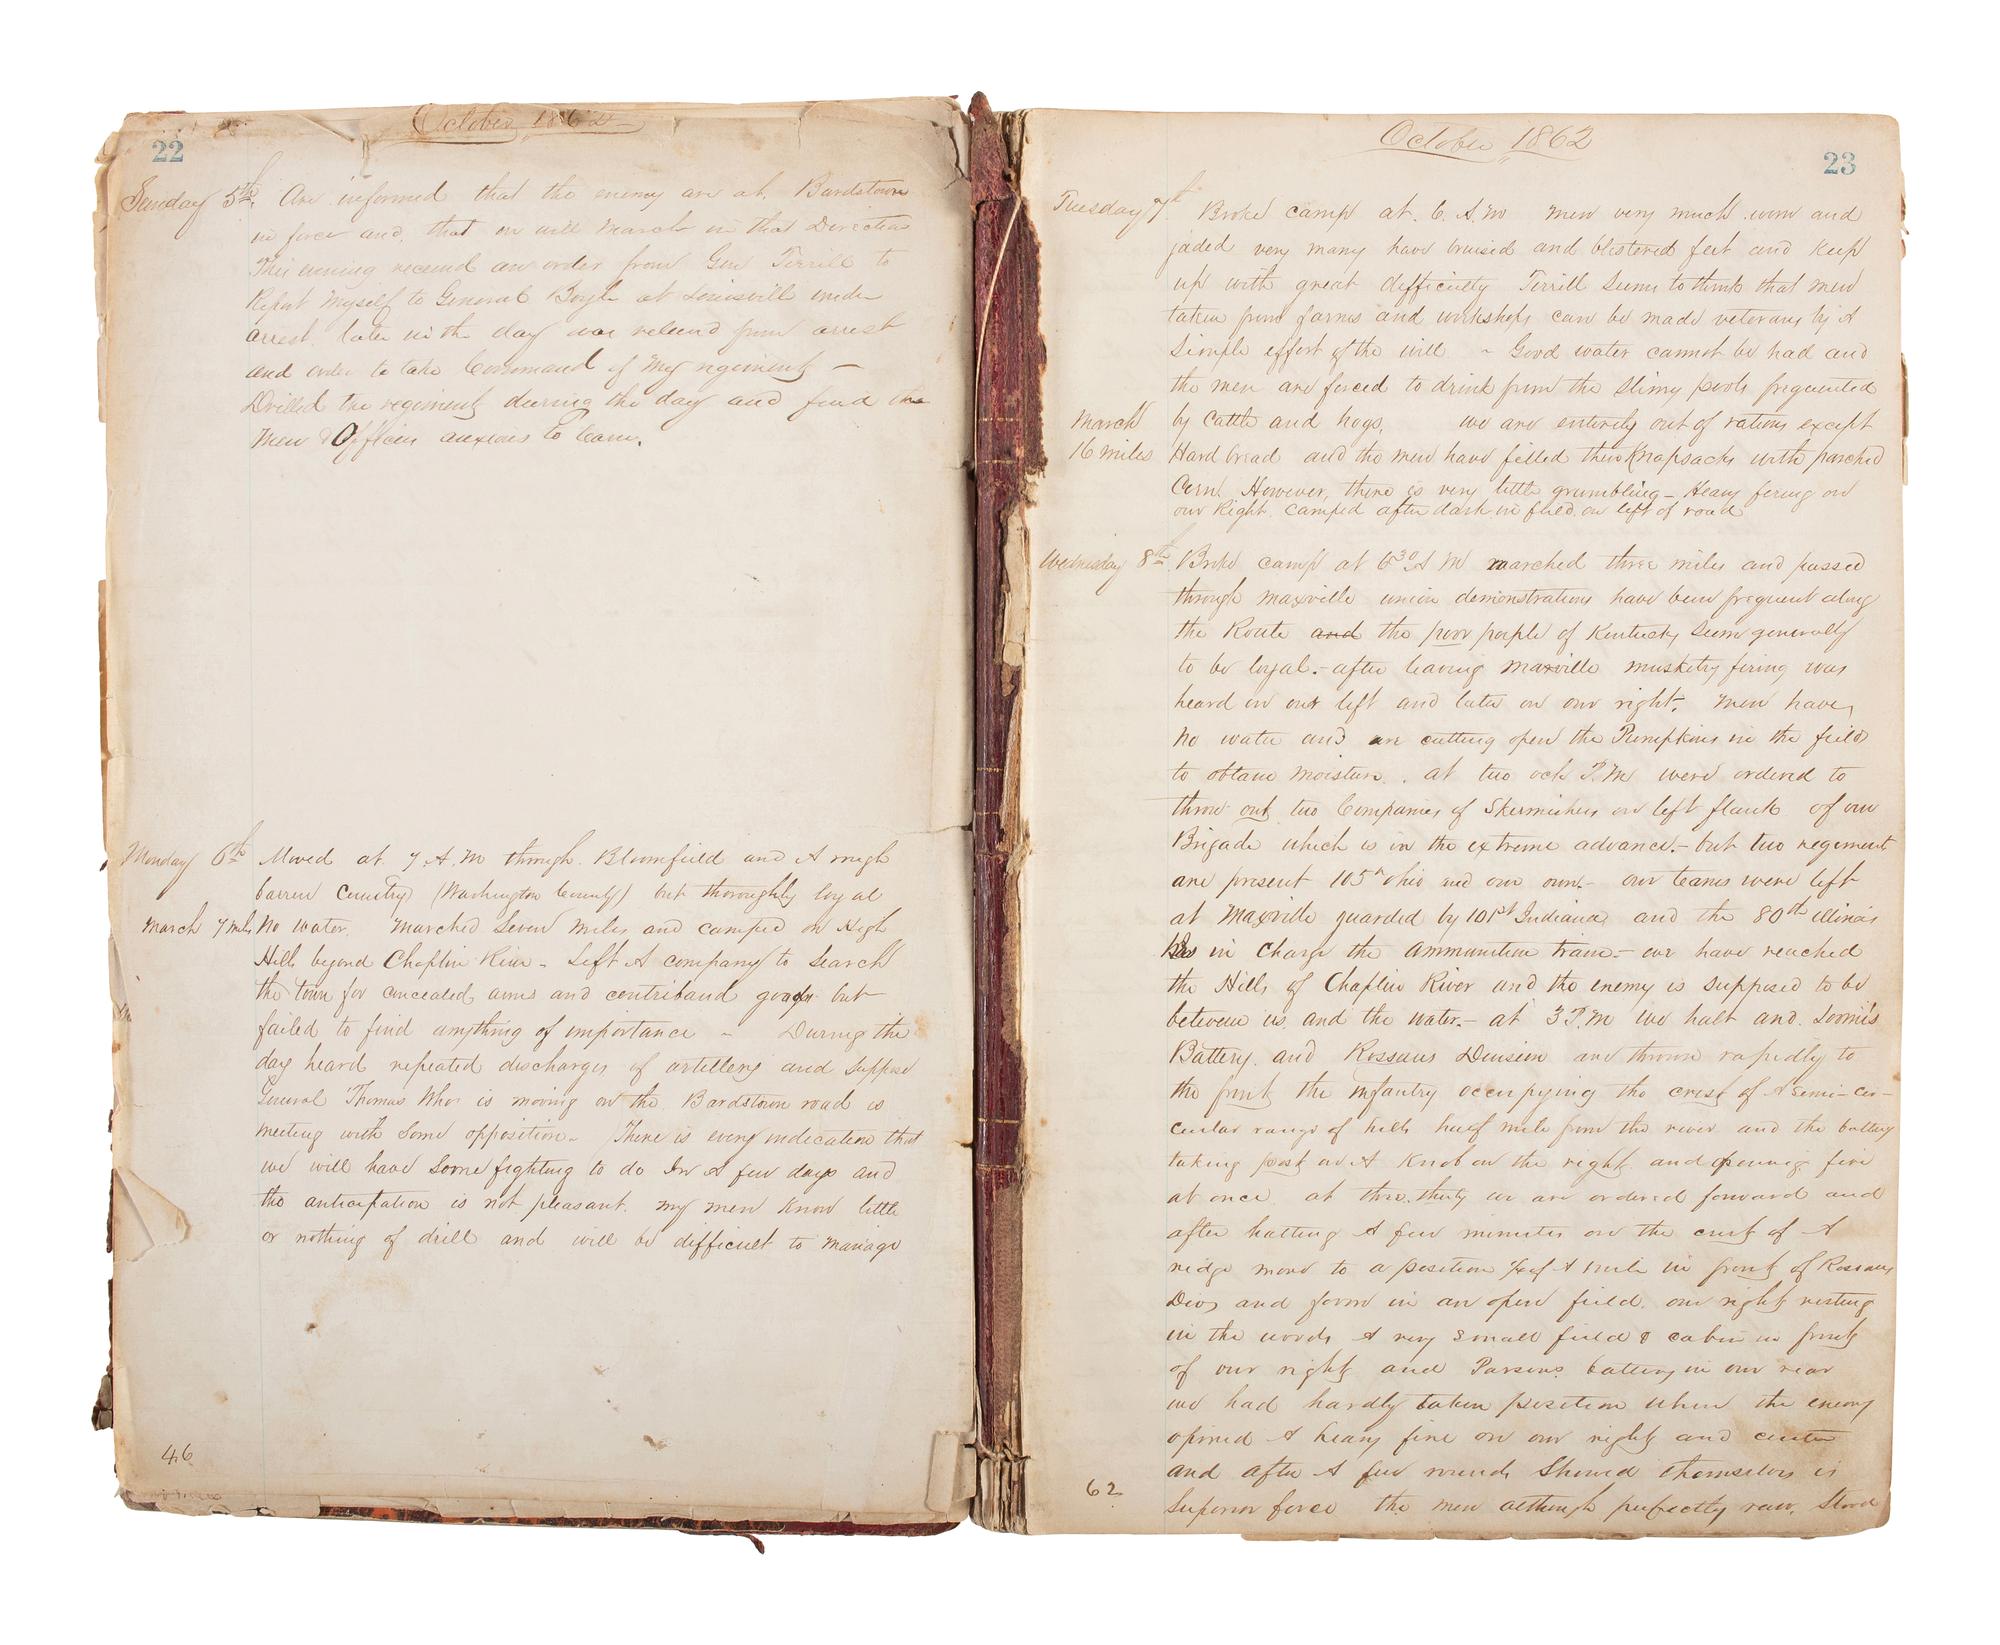 October 1862
22
Sunday 5th. Are informed that the enemy are at Bardstown
in force and that we will march in that Direction
This evening received an order from Gen Terrill to
Report myself to General Boyle at Louisville under
arrest. later in the day was released from arrest
and order to take Command of my regiment —
Drilled the regiment during the day and find the
Men & Officers anxious to learn.
Monday 6th Moved at 7. A. M through Bloomfield and A rough
barren Country (Washington County) but thoroughly loyal
March 7 miles No water. Marched Seven miles and camped on High
Hills beyond Chaplin River - Left A company to search
the town for concealed arms and contriband goods but
failed to find anything of importance - During the
day heard repeated discharges of artillery and suppose
General Thomas Who is moving on the Bardstown road is
meeting with some opposition - There is every indication that
we will have some fighting to do In A few days and
the anticipation is not pleasant. my men know little
or nothing of drill and will be difficult to manage
46
October 1862
23
Tuesday 7th Broke camp at 6. A. M Men very much worn and
jaded very many have bruised and blistered feet and keep
up with great difficulty Terrill Seems to think that men
taken from farms and workshops can be made veterans by A
Simple effort of the will - Good water cannot be had and
the men are forced to drink from the slimy pools frequented
March by cattle and hogs. we are entirely out of rations except
16 miles Hard bread and the men have filled their Knapsacks with parched
Corn. However, there is very little grumbling - Heavy firing on
our Right. camped after dark in field on left of road
Wednesday 8th Broke camp at 6 30 A M marched three miles and passed
through Maxville union demonstrations have been frequent along
the Route and the poor people of Kentucky seem generally
to be loyal. - after leaving Maxville musketry firing was
heard on our left and later on our right. Men have
no water and are cutting open the Pumpkins in the field
to obtain moisture. at two ock P. M were ordered to
throw out two Companies of Skirmishers on left flank of our
Brigade which is in the extreme advance. - but two regiment
are present 105th ohio and our own. - our teams were left
at Maxville guarded by 101st Indiana and the 80th illinois
has in Charge the ammunition train. - we have reached
the Hills of Chaplin River and the enemy is supposed to be
between us and the water. - at 3 P. M we halt and Loomis
Battery and Rossaus Division are thrown rapidly to
the front the infantry occupying the crest of A semi-cir-
cular range of hills half mile from the river and the battery
taking post on A Knob on the right and opening fire
at once at three. thirty we are ordered forward and
after halting A few minutes on the crest of A
ridge move to a position ½ of A mile in front of Rossaus
Divs and form in an open field. our right resting
in the woods A very small field & cabin in front
of our right and Parsons battery in our rear
we had hardly taken position when the enemy
opened A heavy fire on our right and center
and after A few rounds Showed themselves in
Superior force the men although perfectly raw. Stood
62